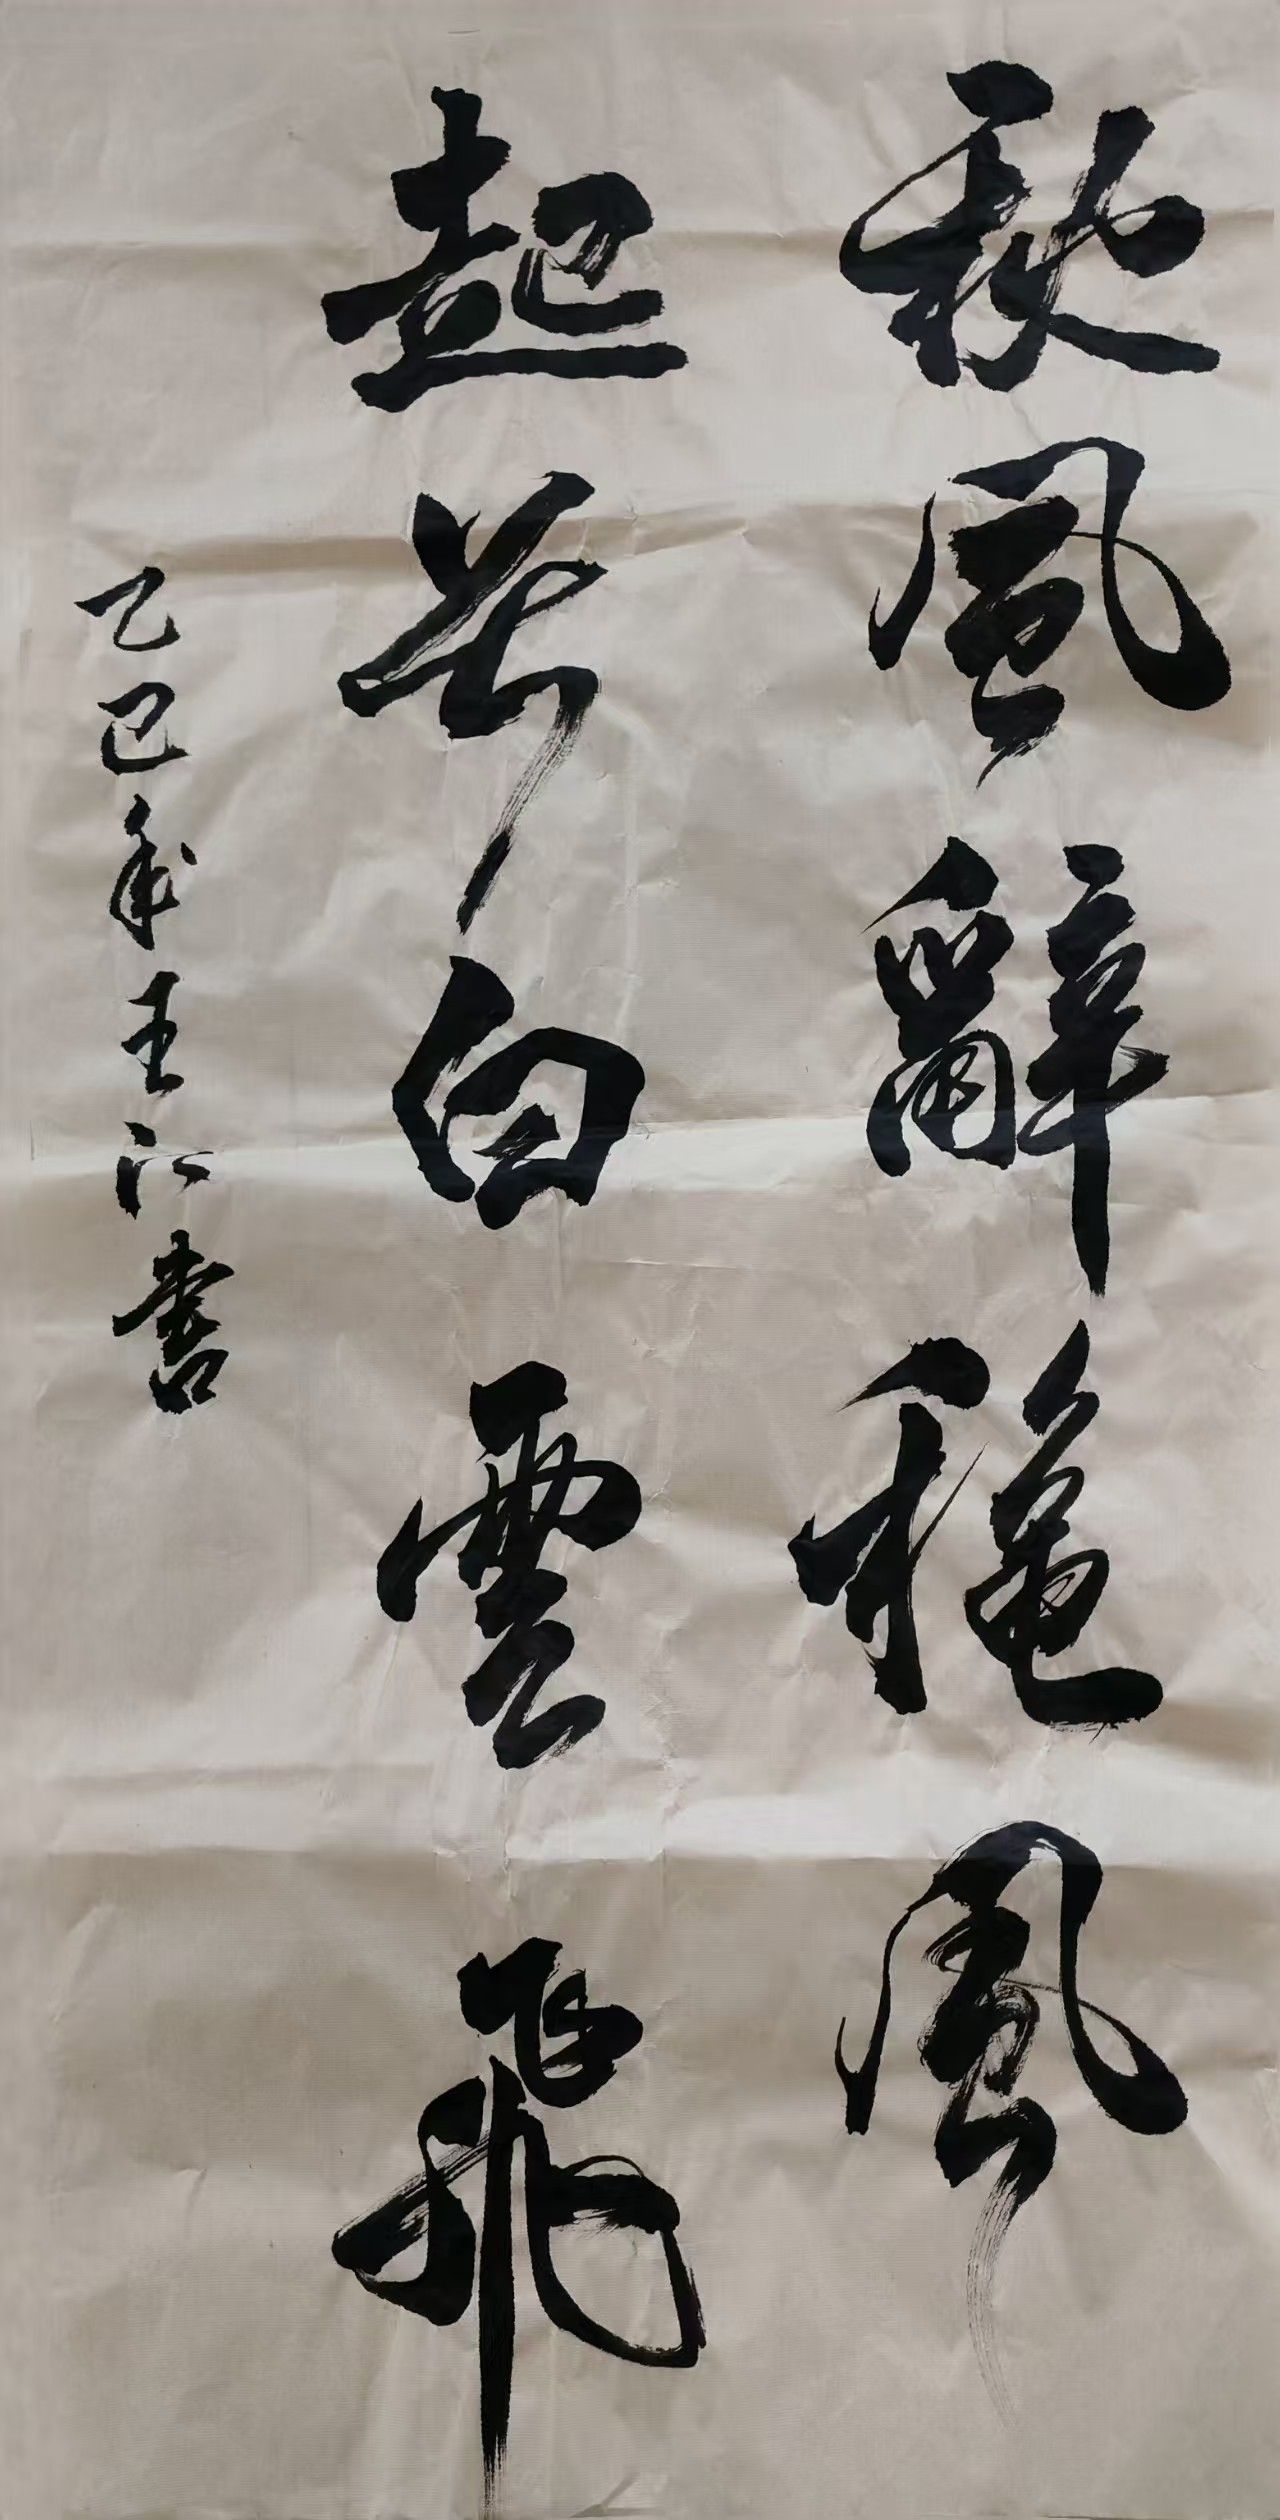 秋風辭秋風
起兮白雲飛
乙巳年王江書